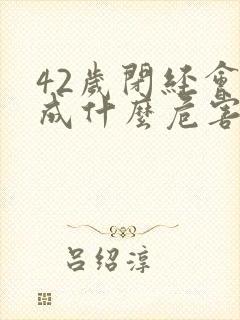 42歲閉經會
成什麼危害
呂紹淳